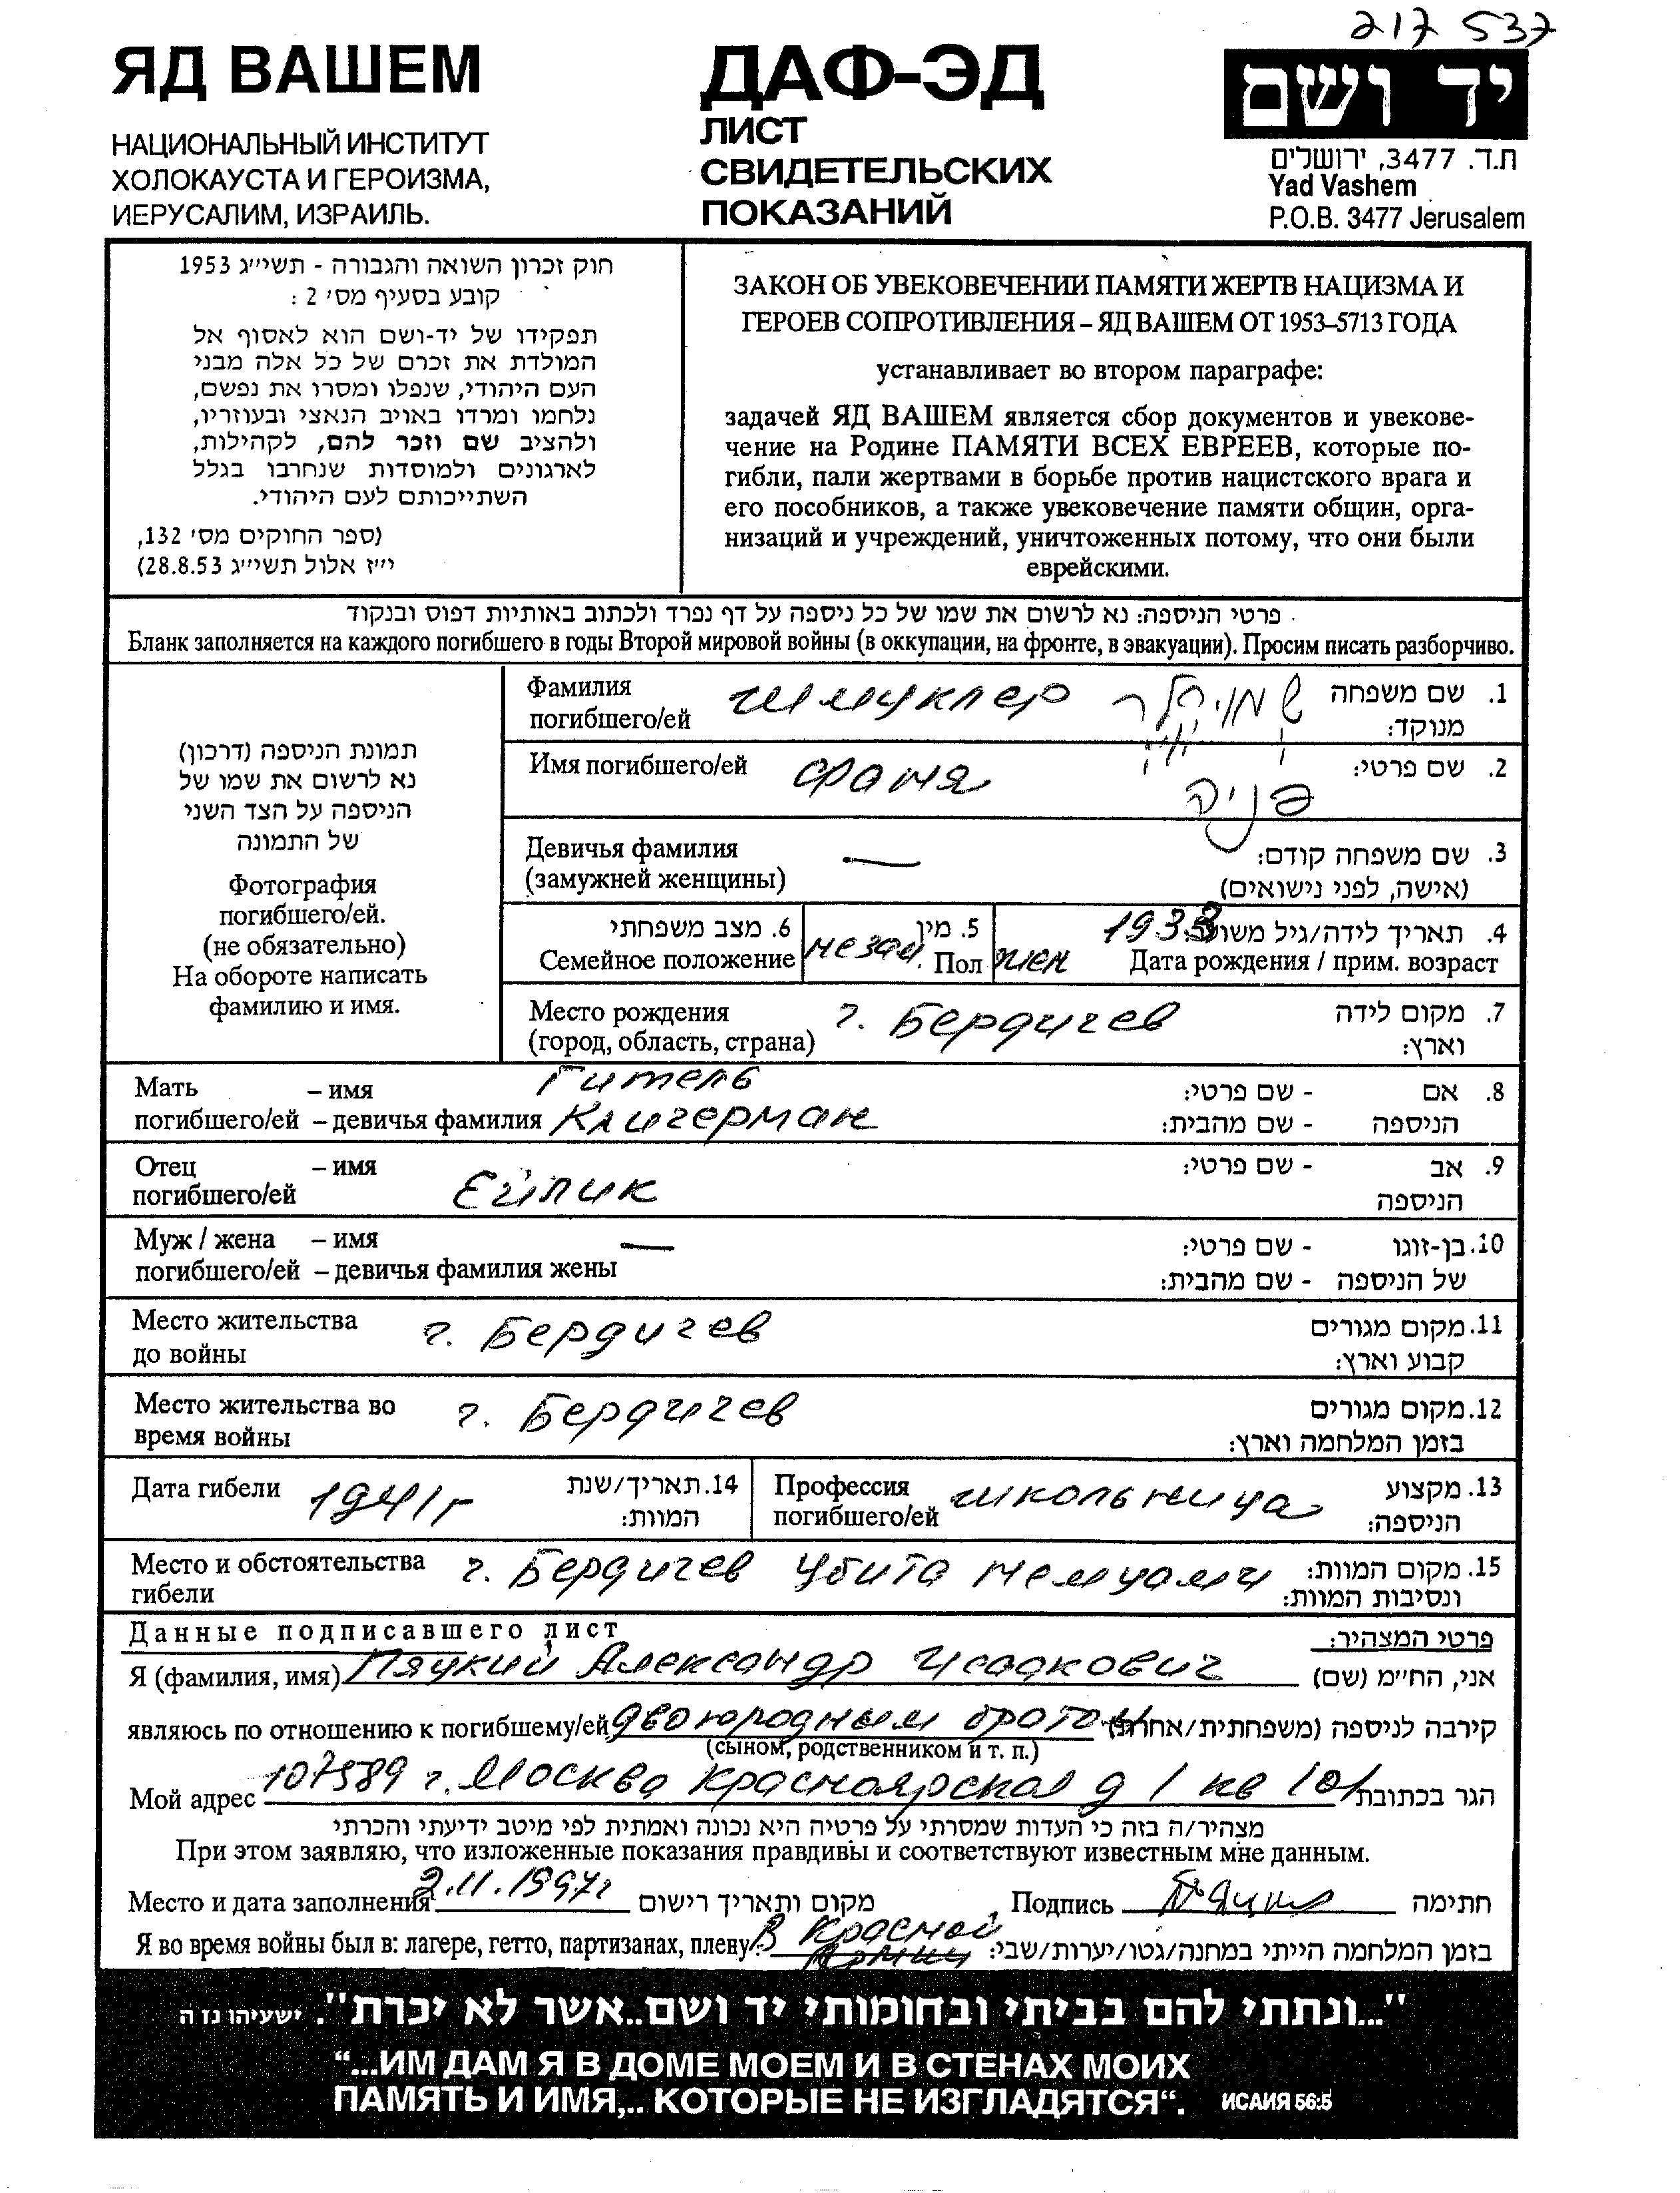 217 537
ЯД ВАШЕМ
НАЦИОНАЛЬНЫЙ ИНСТИТУТ
ХОЛОКАУСТА И ГЕРОИЗМА,
ИЕРУСАЛИМ, ИЗРАИЛЬ.
ДАФ-ЭД
ЛИСТ
СВИДЕТЕЛЬСКИХ
ПОКАЗАНИЙ
יד ושם
ת.ד. 3477, ירושלים
Yad Vashem
P.O.B. 3477 Jerusalem
חוק זכרון השואה והגבורה - תשי״ג 1953
קובע בסעיף מס׳ 2 :
תפקידו של יד-ושם הוא לאסוף אל
המולדת את זכרם של כל אלה מבני
העם היהודי, שנפלו ומסרו את נפשם,
נלחמו ומרדו באויב הנאצי ובעוזריו,
ולהציב שם וזכר להם, לקהילות,
לארגונים ולמוסדות שנחרבו בגלל
השתייכותם לעם היהודי.
(ספר החוקים מס׳ 132,
י״ז אלול תשי״ג 28.8.53)
ЗАКОН ОБ УВЕКОВЕЧЕНИИ ПАМЯТИ ЖЕРТВ НАЦИЗМА И
ГЕРОЕВ СОПРОТИВЛЕНИЯ – ЯД ВАШЕМ ОТ 1953–5713 ГОДА
устанавливает во втором параграфе:
задачей ЯД ВАШЕМ является сбор документов и увекове-
чение на Родине ПАМЯТИ ВСЕХ ЕВРЕЕВ, которые по-
гибли, пали жертвами в борьбе против нацистского врага и
его пособников, а также увековечение памяти общин, орга-
низаций и учреждений, уничтоженных потому, что они были
еврейскими.
פרטי הניספה: נא לרשום את שמו של כל ניספה על דף נפרד ולכתוב באותיות דפוס ובנקוד
Бланк заполняется на каждого погибшего в годы Второй мировой войны (в оккупации, на фронте, в эвакуации). Просим писать разборчиво.
תמונת הניספה (דרכון)
נא לרשום את שמו של
הניספה על הצד השני
של התמונה
Фотография
погибшего/ей.
(не обязательно)
На обороте написать
фамилию и имя.
Фамилия Шмуклер שמוקלר 1. שם משפחה
погибшего/ей מנוקד:
Имя погибшего/ей Фаня פניה 2. שם פרטי:
Девичья фамилия — 3. שם משפחה קודם:
(замужней женщины) (אישה, לפני נישואים)
6. מצב משפחתי незам. 5. מין жен 1933 4. תאריך לידה/גיל משוער:
Семейное положение Пол Дата рождения / прим. возраст
Место рождения г. Бердичев 7. מקום לידה
(город, область, страна) וארץ:
Мать – имя Гитель 8. אם - שם פרטי:
погибшего/ей – девичья фамилия Клигерман הניספה - שם מהבית:
Отец – имя Ейлик 9. אב - שם פרטי:
погибшего/ей הניספה
Муж / жена – имя — 10. בן-זוגו - שם פרטי:
погибшего/ей – девичья фамилия жены של הניספה - שם מהבית:
Место жительства г. Бердичев 11. מקום מגורים
до войны קבוע וארץ:
Место жительства во г. Бердичев 12. מקום מגורים
время войны בזמן המלחמה וארץ:
Дата гибели 1941г 14. תאריך/שנת
המוות:
Профессия школьница 13. מקצוע
погибшего/ей הניספה:
Место и обстоятельства г. Бердичев Убита немцами 15. מקום המוות:
гибели ונסיבות המוות:
Данные подписавшего лист פרטי המצהיר:
Я (фамилия, имя) Пяцкий Александр Исаакович אני, הח״מ (שם)
являюсь по отношению к погибшему/ей двоюродным братом קירבה לניספה (משפחתית/אחרת)
(сыном, родственником и т. п.)
Мой адрес 107589 г. Москва Красноярская д 1 кв 101 הגר בכתובת
מצהיר/ה בזה כי העדות שמסרתי על פרטיה היא נכונה ואמתית לפי מיטב ידיעתי והכרתי
При этом заявляю, что изложенные показания правдивы и соответствуют известным мне данным.
Место и дата заполнения 2.11.1997г מקום ותאריך רישום Подпись Пяцкий חתימה
Я во время войны был в: лагере, гетто, партизанах, плену: В Красной Армии בזמן המלחמה הייתי במחנה/גטו/יערות/שבי:
"...ונתתי להם בביתי ובחומותי יד ושם..אשר לא יכרת". ישעיהו נז ה
“...ИМ ДАМ Я В ДОМЕ МОЕМ И В СТЕНАХ МОИХ
ПАМЯТЬ И ИМЯ,.. КОТОРЫЕ НЕ ИЗГЛАДЯТСЯ“. ИСАИЯ 56:5